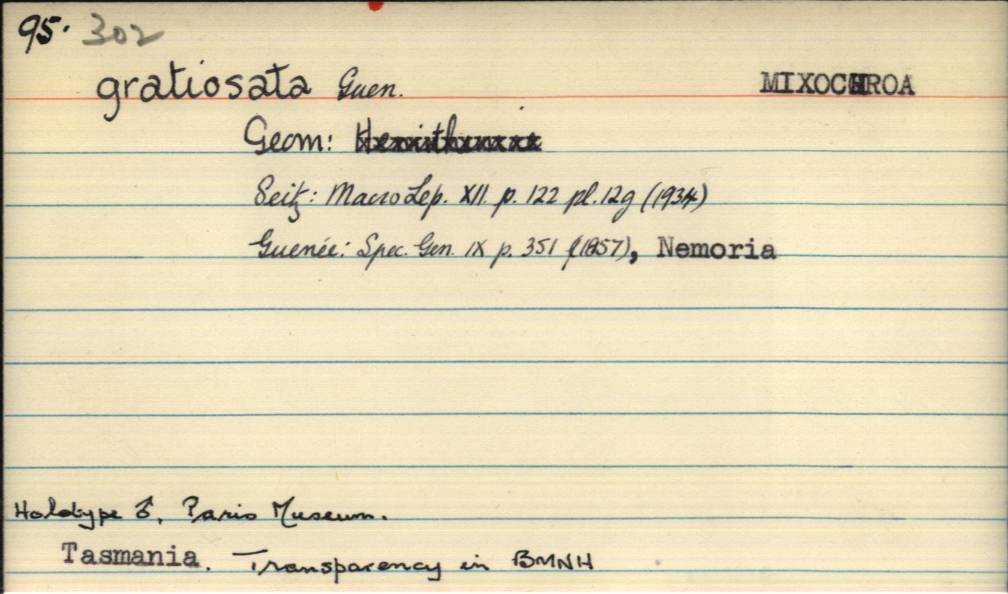 95. 302
gratiosata Guen. MIXOCHROA
Geom:
Seitz: Macro Lep. XII. p. 122 pl. 12g (1934)
Guenée: Spec. Gen. IX p. 351 (1857), Nemoria
Holotype ♂, Paris Museum.
Tasmania. Transparency in BMNH